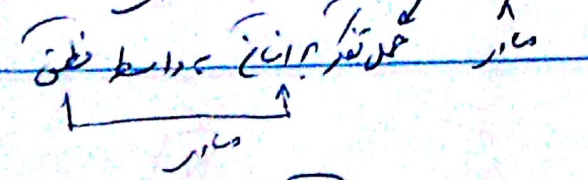 مساوی
حمل تفکر بر انسان به واسطه نطق
مساوی